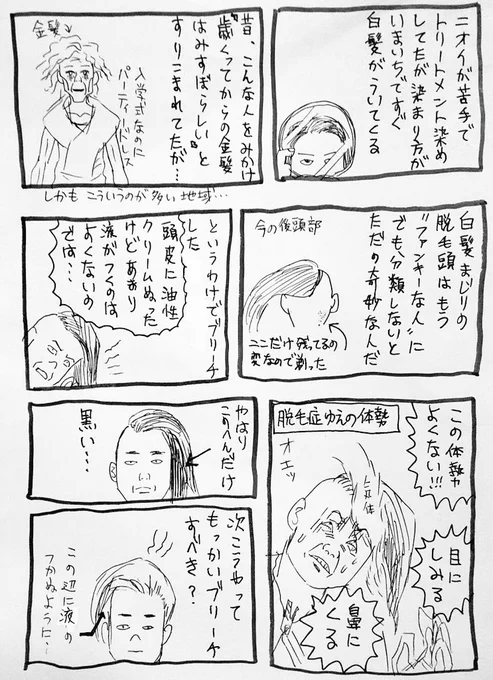 ニオイが苦手で
トリートメント染め
してたが染まり方が
いまいちですぐ
白髪がういてくる
昔、こんな人をみかけ
“歳くってからの金髪
はみすぼらしい”と
すりこまれてたが…
金髪
入学式なのに
パーティードレス
しかもこういうのが多い地域…
白髪まじりの
脱毛頭はもう
“ファンキーな人”に
でも分類しないと
ただの奇妙なんだ
今の後頭部
ここだけ残ってるの
変なので剃った
というわけでブリーチ
した
頭皮に油性
クリームぬった
けどあまり
液がつくのは
よくないの
では…
脱毛症ゆえの体勢
この体勢が
よくない!!!
オエッ
目に
しみる
鼻に
くる
やはり
このへんだけ
黒い…
次こうやって
もっかいブリーチ
すべき?
この辺に液の
つかぬように…